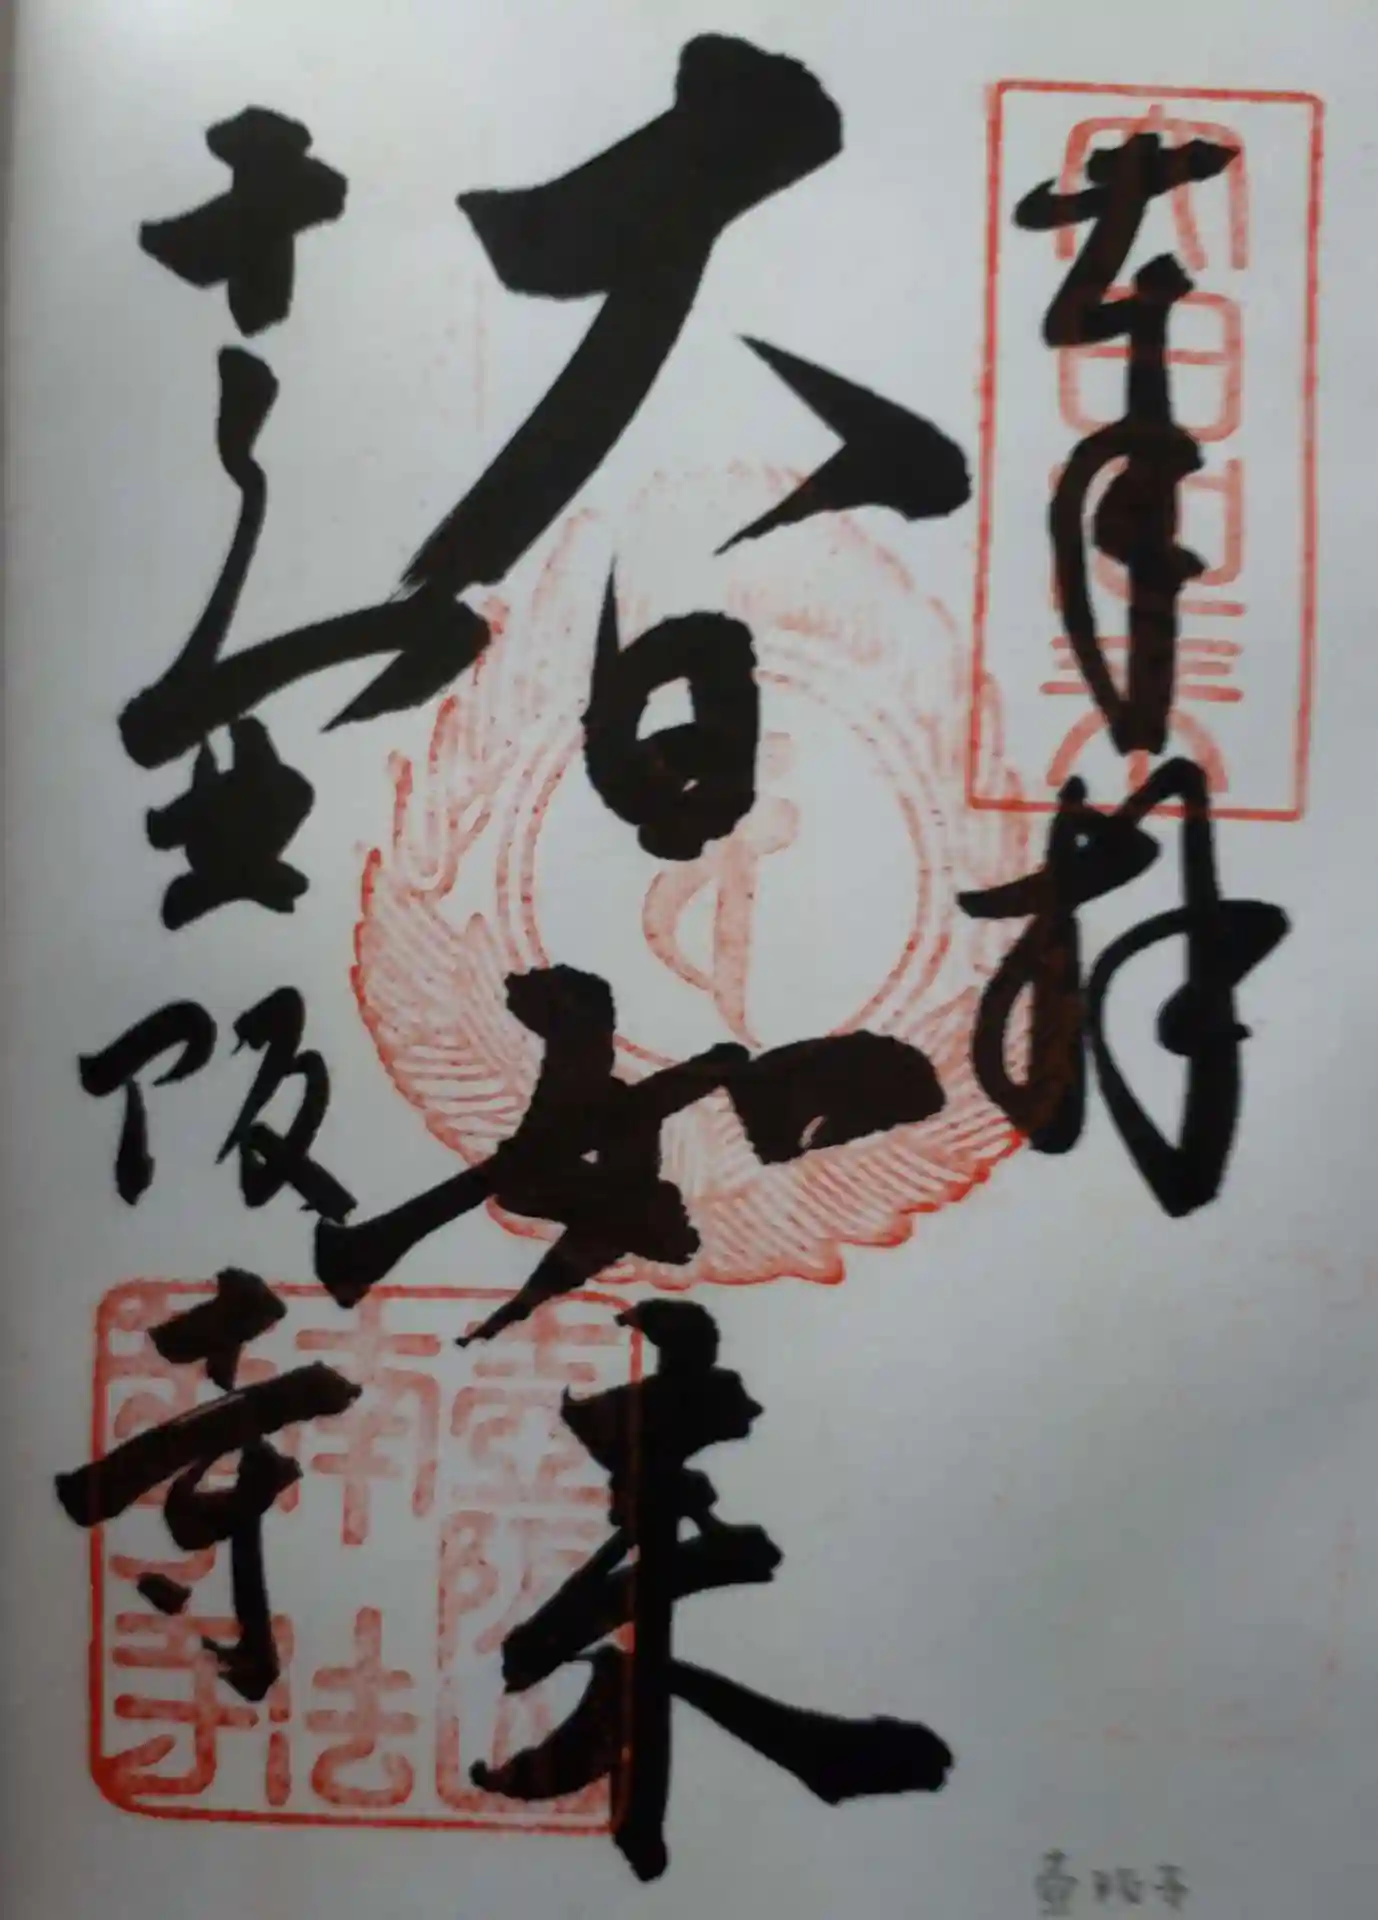 奉拝
大日如来
壺阪寺
壺阪山
南法
華寺
壺阪寺